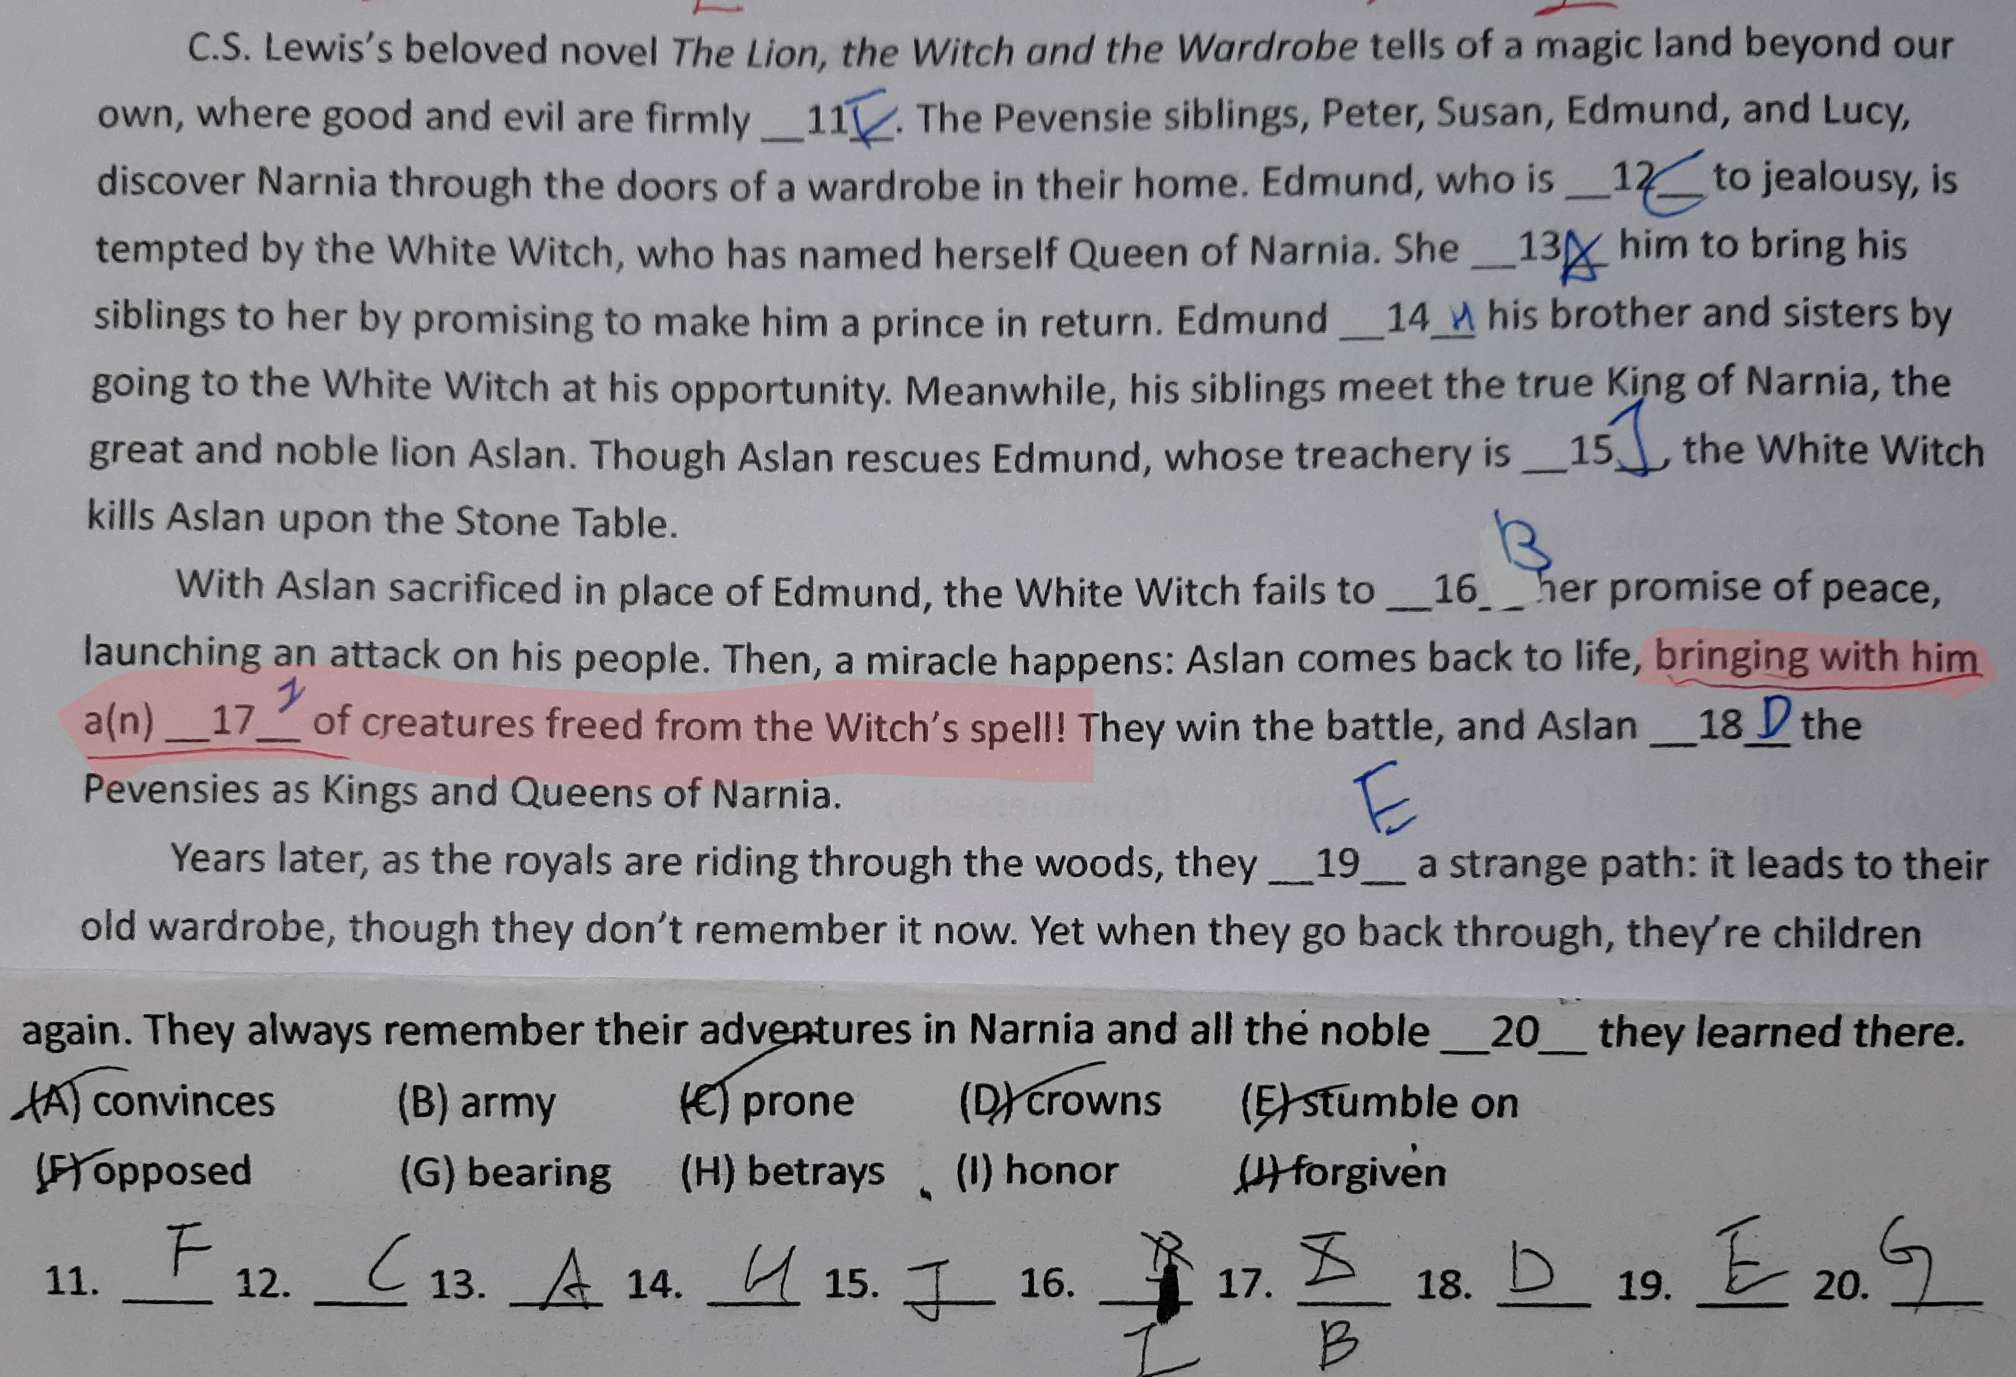 C.S. Lewis's beloved novel The Lion, the Witch and the Wardrobe tells of a magic land beyond our
own, where good and evil are firmly __11__. The Pevensie siblings, Peter, Susan, Edmund, and Lucy,
discover Narnia through the doors of a wardrobe in their home. Edmund, who is __12__ C to jealousy, is
tempted by the White Witch, who has named herself Queen of Narnia. She __13__ A him to bring his
siblings to her by promising to make him a prince in return. Edmund __14__ H his brother and sisters by
going to the White Witch at his opportunity. Meanwhile, his siblings meet the true King of Narnia, the
great and noble lion Aslan. Though Aslan rescues Edmund, whose treachery is __15__ J, the White Witch
kills Aslan upon the Stone Table.
B
With Aslan sacrificed in place of Edmund, the White Witch fails to __16__ her promise of peace,
launching an attack on his people. Then, a miracle happens: Aslan comes back to life, bringing with him
a(n) __17__ I of creatures freed from the Witch's spell! They win the battle, and Aslan __18__ D the
Pevensies as Kings and Queens of Narnia.
E
Years later, as the royals are riding through the woods, they __19__ a strange path: it leads to their
old wardrobe, though they don't remember it now. Yet when they go back through, they're children
again. They always remember their adventures in Narnia and all the noble __20__ they learned there.
(A) convinces (B) army (C) prone (D) crowns (E) stumble on
(F) opposed (G) bearing (H) betrays (I) honor (J) forgiven
11. F 12. C 13. A 14. H 15. J 16. 17. I 18. D 19. E 20. G
I B